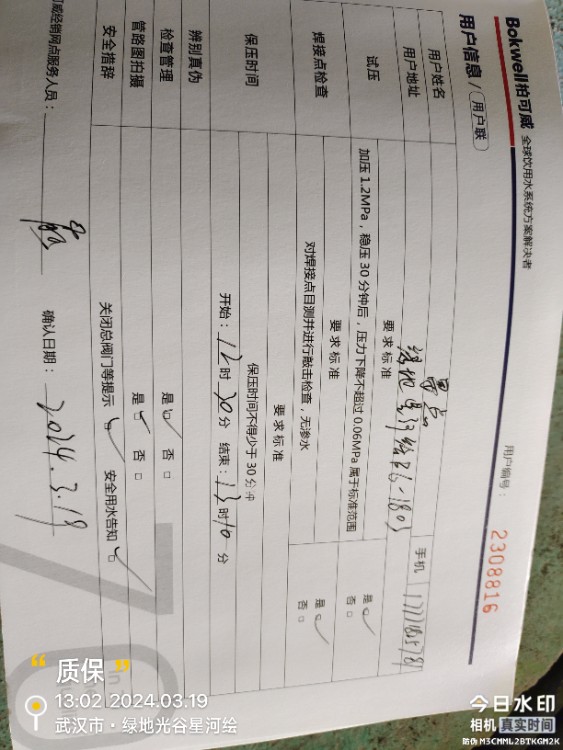 Bokwell柏可威 全球饮用水系统方案解决者
用户编号： 2308816
用户信息 / 用户联
用户姓名 手机
用户地址 绿地星河绘 1803
试压 要求标准
加压 1.2MPa，稳压 30 分钟后，压力下降不超过 0.06MPa 属于标准范围 是 否
焊接点检查 要求标准
对焊接点目测并进行敲击检查，无渗水 是 否
保压时间 要求标准
保压时间不得少于 30 分钟
开始：12 时 30 分 结束：13 时 10 分
辨别真伪
检查管理 是 否
管路图拍摄 是 否
安全措辞 关闭总阀门等提示 安全用水告知
可威经销网点服务人员： 确认日期：2024.3.19
“质保”
13:02 2024.03.19
武汉市·绿地光谷星河绘
今日水印
相机 真实时间
防伪 M3CMML2BTKGM2K